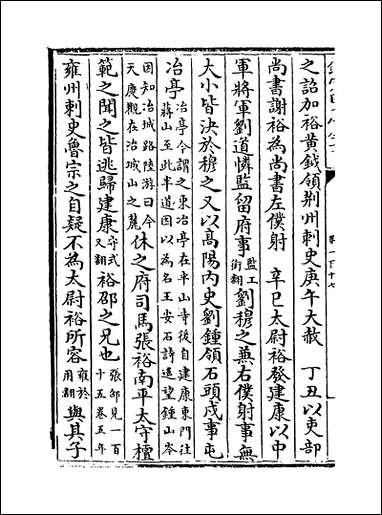 之詔加裕黄鉞領荆州刺史庚午大赦 丁丑以吏部
尚書謝裕為尚書左僕射 辛巳太尉裕發建康以中
軍將軍劉道憐監留府事監工銜翻劉穆之兼右僕射事無
大小皆決於穆之又以髙陽内史劉鍾領石頭戍事屯
冶亭冶亭今謂之東冶亭在半山寺後自建康東門往蔣山至此半道因以為名王安石詩遥望鍾山岑
因知冶城路陸游曰今天慶觀在冶城山之麓休之府司馬張裕南平太守檀
範之聞之皆逃歸建康守式又翻裕邵之兄也張邵見一百十五卷五年
雍州刺史魯宗之自疑不為太尉裕所容雍於用翻與其子